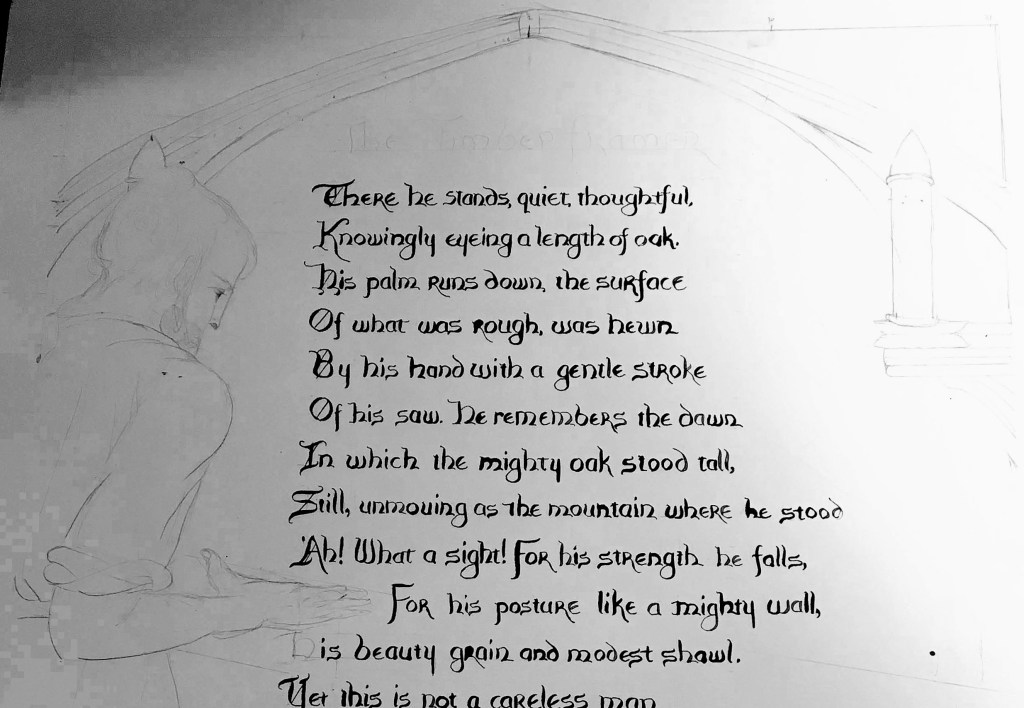 The Timber Framer
There he stands, quiet, thoughtful,
Knowingly eyeing a length of oak.
His palm runs down, the surface
Of what was rough, was hewn
By his hand with a gentle stroke
Of his saw. He remembers the dawn
In which the mighty oak stood tall,
Still, unmoving as the mountain where he stood
Ah! What a sight! For his strength he falls,
For his posture like a mighty wall,
His beauty grain and modest shawl.
Yet this is not a careless man